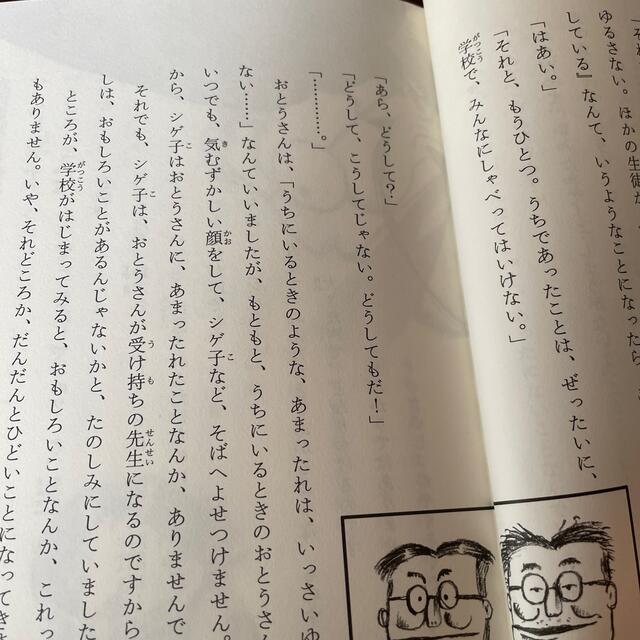 「それ
ゆるさない。ほかの生徒が、
している』なんて、いうようなことになったら、
「はあい。」
「それと、もうひとつ。うちであったことは、ぜったいに、
学校で、みんなにしゃべってはいけない。」
「あら、どうして？」
「どうして、こうしてじゃない。どうしてもだ！」
「…………。」
おとうさんは、「うちにいるときのような、あまったれは、いっさいゆ
ない……」なんていいましたが、もともと、うちにいるときのおとうさん
いつでも、気むずかしい顔をして、シゲ子など、そばへよせつけません。
から、シゲ子はおとうさんに、あまったれたことなんか、ありませんで
それでも、シゲ子は、おとうさんが受け持ちの先生になるのですから
しは、おもしろいことがあるんじゃないかと、たのしみにしていました
ところが、学校がはじまってみると、おもしろいことなんか、これっ
もありません。いや、それどころか、だんだんとひどいことになってき